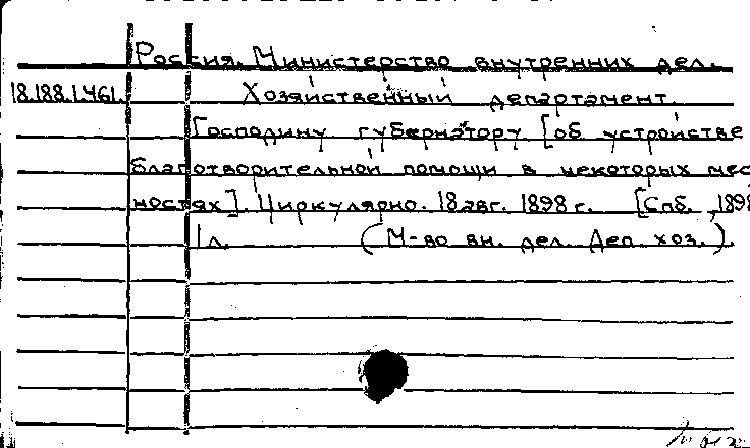 Россия. Министерство внутренних дел.
18.188.1.461. Хозяйственный департамент.
Господину губернатору [об устройстве
благотворительной помощи в некоторых мес
ностях]. Циркулярно. 18 авг. 1898 г. [Спб., 1898
1 л. (М-во вн. дел. Деп. хоз.).